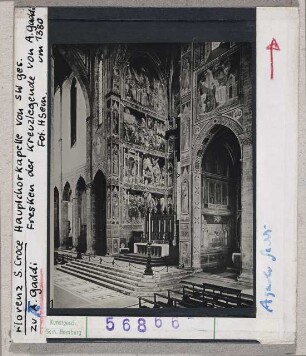 Florenz S. Croce Hauptchorkapelle von SW ges.
Fresken der Kreuzlegende von A. Gaddi
um 1380
zu A. Gaddi
Fot. H Sem.
Kunstgesch.
Sem. Hamburg
56866